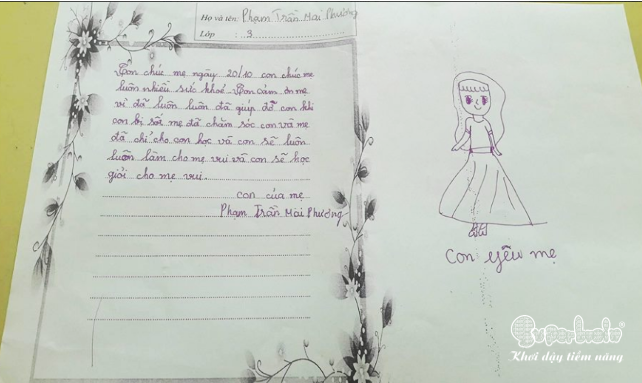 Họ và tên: Phạm Trần Mai Phương
Lớp 3
Con chúc mẹ ngày 20/10 con chúc mẹ
luôn nhiều sức khoẻ. Con cảm ơn mẹ
vì đã luôn luôn đã giúp đỡ con khi
con bị sốt mẹ đã chăm sóc con và mẹ
đã chỉ cho con học và con sẽ luôn
luôn làm cho mẹ vui và con sẽ học
giỏi cho mẹ vui
con của mẹ
Phạm Trần Mai Phương
con yêu mẹ
Superbrain
Khơi dậy tiềm năng